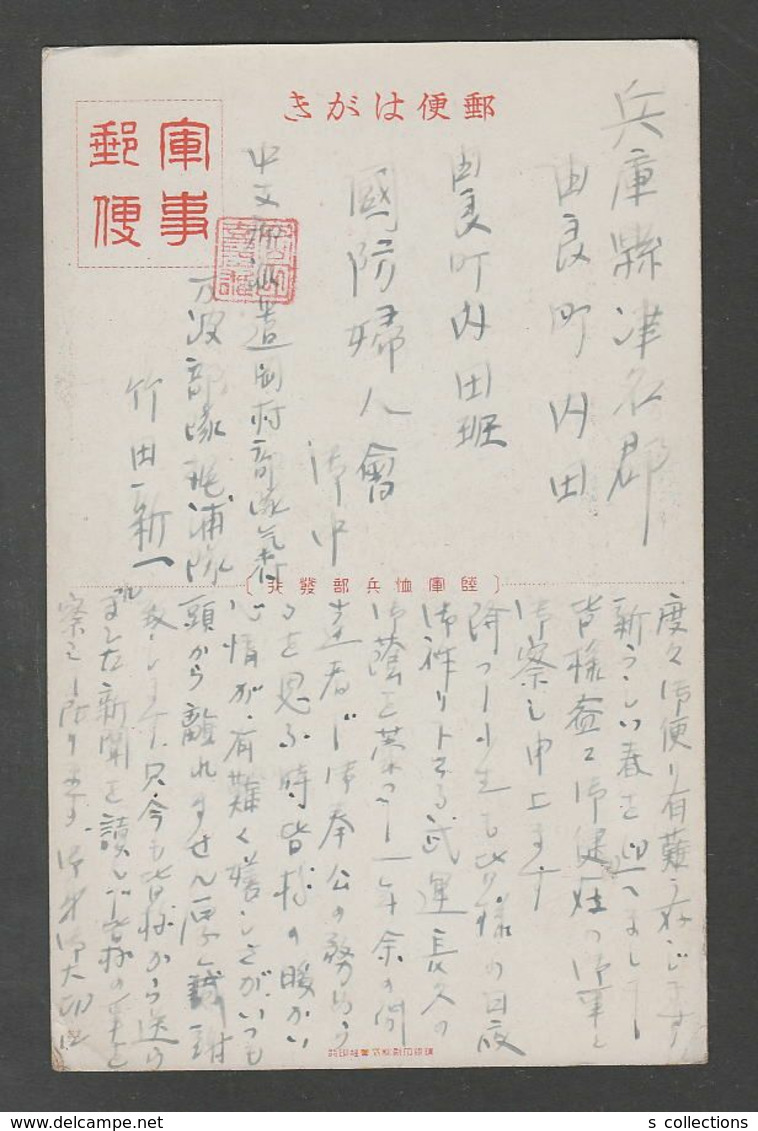 郵便はがき
軍事郵便
兵庫縣津名郡
由良町内田
由良町内田班
國防婦人會
御中
中支派遣岡村部隊気付
万波部隊 浦隊
竹田新一
〔陸軍恤兵部發行〕
度々御便り有難う存じます
新らしい春を迎へまして
皆様益々御健壮の御事と
御察し申上ます
降つて小生も皆様の日夜
御祈り下さる武運長久の
御蔭を蒙つて一年余の間
達者で御奉公の務めう
る を思ふ時皆様の暖かい
心情が有難く嬉しさがいつも
頭から離れません厚く感謝
致します只今も皆様から送ら
れました新聞を讀んで皆様の事を
察して居ります 御身御大切に
s collections